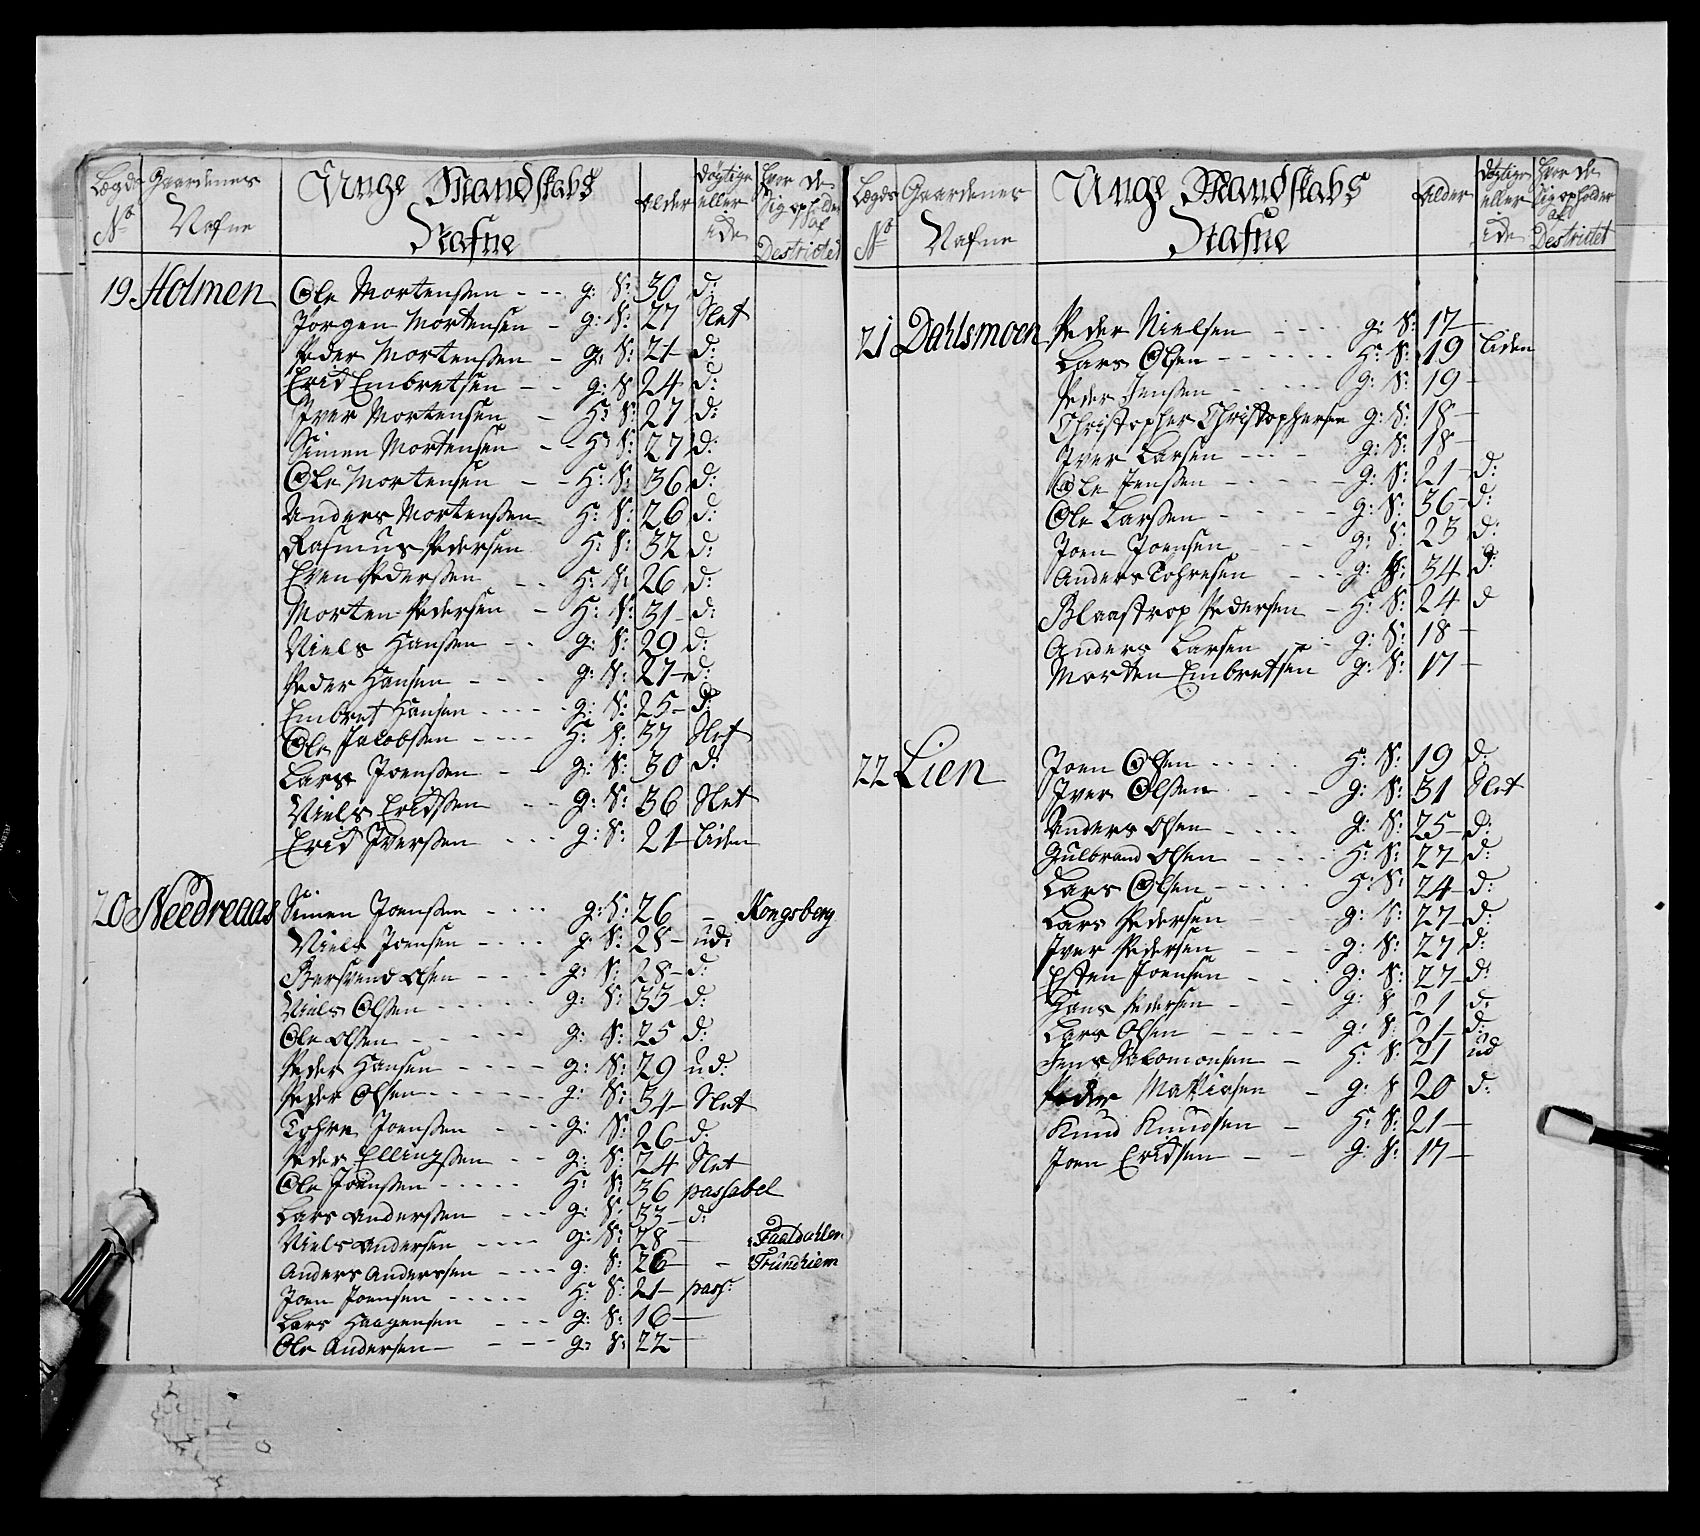 Lægds No Gaardenes Nafne Unge Mandskabs Nafne Alder døgtige eller ide Hvor de Sig opholder af Destrictet
19 Holmen Ole Mortenssen g: S: 30 d:
Jørgen Mortensen g: S: 27 Slet
Peder Mortenssen g: S: 21 d:
Erich Embretsen g: S: 24 d:
Iver Mortensen H: S: 27 d:
Simen Mortensen H: S: 27 d:
Ole Mortensen H: S: 36 d:
Anders Mortenssen H: S: 26 d:
Rasmus Pedersen H: S: 32 d:
Even Pederssen H: S: 26 d:
Morten Pedersen H: S: 31 d:
Niels Hanssen g: S: 29 d:
Peder Hansen g: S: 27 d:
Embret Hansen g: S: 25 d:
Ole Jacobssen H: S: 37 Slet
Lars Joenssen g: S: 30 d:
Niels Eridssen g: S: 36 Slet
Erich Iverssen g: S: 21 liden
20 Needreaas Simen Joenssen g: S: 26 - Kongsberg
Niels Joensen g: S: 28 ud:
Bersvend Olsen g: S: 28 d:
Niels Olssen g: S: 33 d:
Ole Olssen g: S: 25 d:
Peder Hansen g: S: 29 ud:
Peder Olsen g: S: 34 Slet
Tohre Joenssen g: S: 26 d:
Peder Ellingssen g: S: 24 Slet
Ole Joenssen H: S: 36 passabel
Lars Anderssen g: S: 33 d:
Niels Andersen g: S: 28 -
Anders Anderssen g: S: 26 - Trundhiem
Joen Joensen H: S: 21 pass:
Lars Haagensen g: S: 16
Ole Andersen g: S: 22
Lægds No Gaardenes Nafne Unge Mandskabs Nafne Alder døgtige eller ide Hvor de Sig opholder af Destrictet
21 Dahlsmoen Peder Nielsen g: S: 17
Lars Olsen H: S: 19 liden
Peder Jenssen g: S: 19
Christopher Christophersen g: S: 18
Iver Larsen g: S: 18
Ole Jenssen g: S: 21 d:
Ole Larssen g: S: 36 d:
Joen Joensen g: S: 23 d:
Anders Tohresen g: S: 34 d:
Blaastrop Pedersen H: S: 24 d
Anders Larsen g: S: 18
Morten Embretsen g: S: 17
22 Lien Joen Olsen H: S: 19 d:
Iver Olssen g: S: 31 Slet
Anders Olsen g: S: 25 d:
Gulbrand Olsen H: S: 27 d:
Lars Olsen H: S: 24 d:
Lars Pedersen g: S: 27 d:
Iver Pedersen g: S: 27 d:
Esten Joensen g: S: 27 d:
Hans Pedersen g: S 21 d:
Lars Olsen g: S: 21 d:
Jens Salomonsen H: S: 21 ud
Peder Mathiasen g: S 20 d:
Knud Knudsen H: S: 21
Joen Eridsen g: S: 17